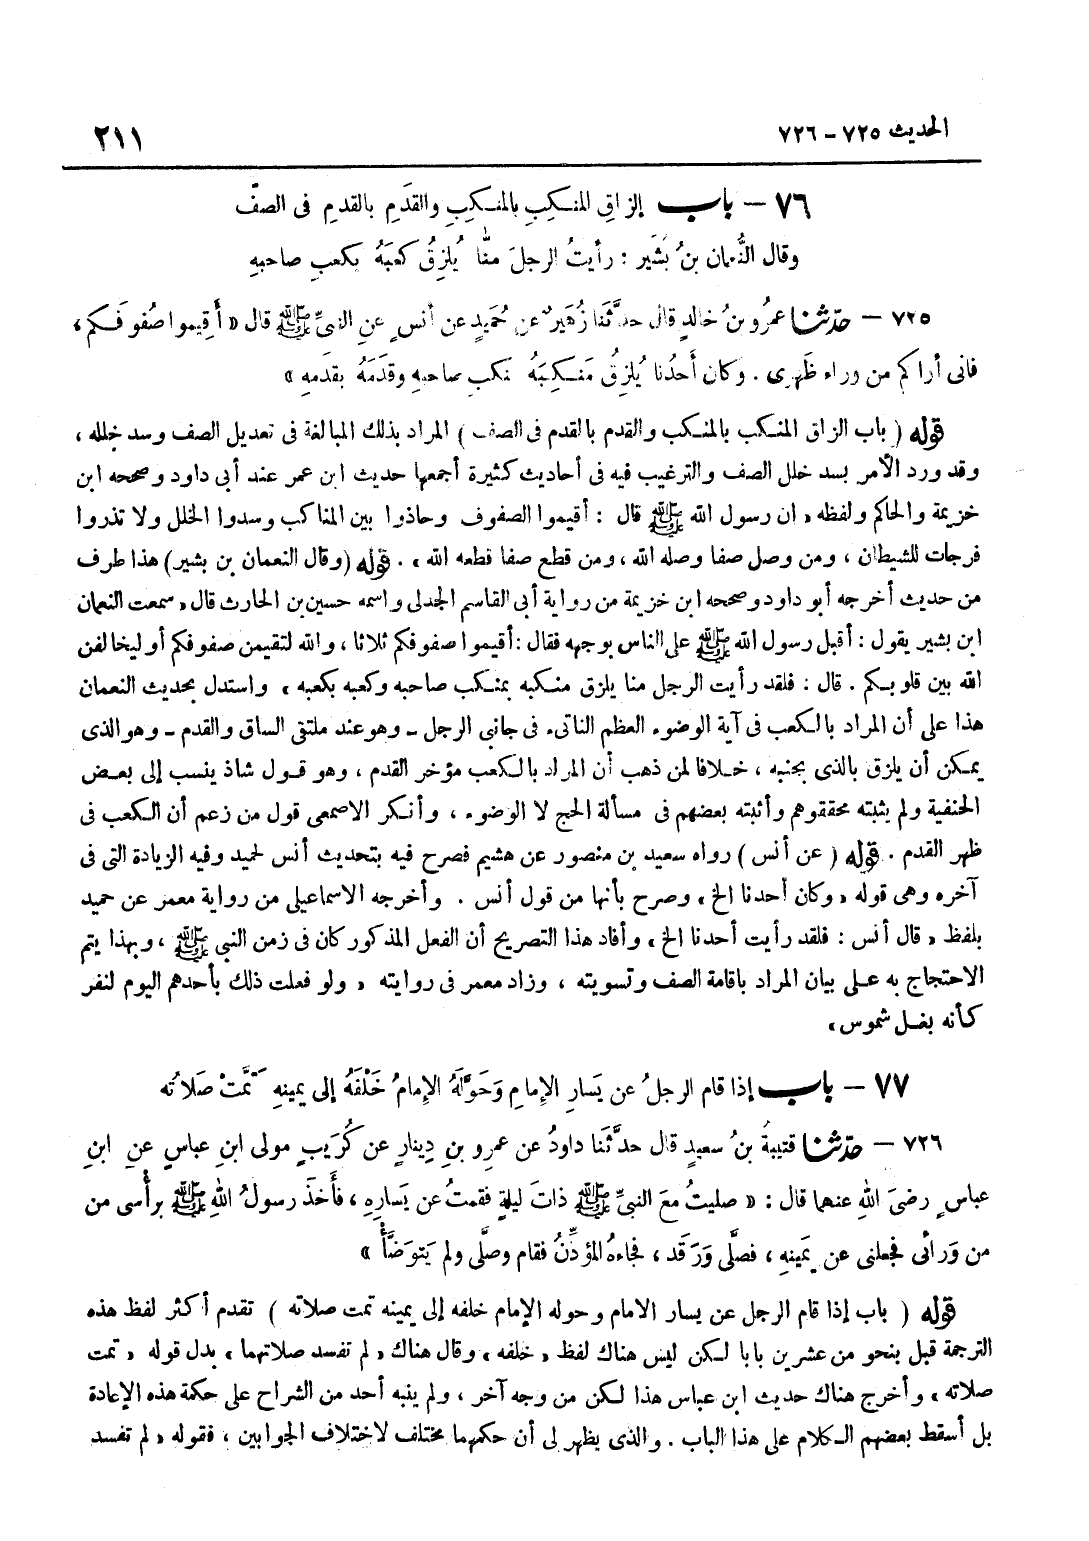 الحديث ٧٢٥ – ٧٢٦ ٢١١
٧٦ – باب إلزاقِ المنكِبِ بالمنكِبِ والقَدَمِ بالقدمِ فى الصفّ
وقال النُّعمان بنُ بَشير : رأيتُ الرجلَ منّا يُلزِقُ كعبَهُ بكعبِ صاحبهِ
٧٢٥ – حدثنا عمرُو بنُ خالدٍ قال حدَّثَنا زُهَيرٌ عن حُميدٍ عن أنسٍ عنِ النبىِّ ﷺ قال « أقِيموا صُفوفَكم ،
فانى أراكم من وراءِ ظَهرى . وكان أحَدُنا يُلزِقُ مَنكِبَهُ بمنكبِ صاحبهِ وقدَمَهُ بقدَمهِ »
قوله ( باب الزاق المنكب بالمنكب والقدم بالقدم فى الصف ) المراد بذلك المبالغة فى تعديل الصف وسد خلله ،
وقد ورد الأمر بسد خلل الصف والترغيب فيه فى أحاديث كثيرة أجمعها حديث ابن عمر عند أبى داود وصححه ابن
خزيمة والحاكم ولفظه « ان رسول الله ﷺ قال : أقيموا الصفوف وحاذوا بين المناكب وسدوا الخلل ولا تذروا
فرجات للشيطان ، ومن وصل صفا وصله الله ، ومن قطع صفا قطعه الله » . قوله (وقال النعمان بن بشير) هذا طرف
من حديث أخرجه أبو داود وصححه ابن خزيمة من رواية أبى القاسم الجدلى واسمه حسين بن الحارث قال « سمعت النعمان
ابن بشير يقول : أقبل رسول الله ﷺ على الناس بوجهه فقال : أقيموا صفوفكم ثلاثا ، والله لتقيمن صفوفكم أو ليخالفن
الله بين قلوبكم . قال : فلقد رأيت الرجل منا يلزق منكبه بمنكب صاحبه وكعبه بكعبه » واستدل بحديث النعمان
هذا على أن المراد بالكعب فى آية الوضوء العظم الناتىء فى جانبى الرجل – وهو عند ملتقى الساق والقدم – وهو الذى
يمكن أن يلزق بالذى بجنبه ، خلافا لمن ذهب أن المراد بالكعب مؤخر القدم ، وهو قول شاذ ينسب إلى بعض
الحنفية ولم يثبته محققوهم وأثبته بعضهم فى مسألة الحج لا الوضوء ، وأنكر الاصمعى قول من زعم أن الكعب فى
ظهر القدم . قوله ( عن أنس ) رواه سعيد بن منصور عن هشيم فصرح فيه بتحديث أنس لحميد وفيه الزيادة التى فى
آخره وهى قوله « وكان أحدنا الخ » وصرح بأنها من قول أنس . وأخرجه الاسماعيلى من رواية معمر عن حميد
بلفظ « قال أنس : فلقد رأيت أحدنا الخ » وأفاد هذا التصريح أن الفعل المذكور كان فى زمن النبى ﷺ ، وبهذا يتم
الاحتجاج به على بيان المراد باقامة الصف وتسويته ، وزاد معمر فى روايته « ولو فعلت ذلك بأحدهم اليوم لنفر
كأنه بغل شموس »
٧٧ – باب إذا قام الرجلُ عن يَسارِ الإمامِ وَحَوَّلَهُ الإمامُ خَلْفَهُ إلى يمينهِ تَمَّتْ صَلاتُه
٧٢٦ – حدثنا قتيبةُ بنُ سعيدٍ قال حدَّثَنا داودُ عن عمرِو بنِ دِينارٍ عن كُرَيبٍ مولى ابنِ عباسٍ عنِ ابنِ
عباسٍ رضىَ اللهُ عنهما قال : « صليتُ معَ النبىِّ ﷺ ذاتَ ليلةٍ فقمتُ عن يَسارِهِ ، فأَخذَ رسولُ اللهِ ﷺ برأْسى من
من وَرائى فجعلنى عن يَمينهِ ، فصلَّى ورَقَد ، فجاءهُ المؤذِّنُ فقام وصلَّى ولم يَتوَضَّأْ »
قوله ( باب إذا قام الرجل عن يسار الامام وحوله الإمام خلفه إلى يمينه تمت صلاته ) تقدم أكثر لفظ هذه
الترجمة قبل بنحو من عشرين بابا لكن ليس هناك لفظ « خلفه » وقال هناك « لم تفسد صلاتهما » بدل قوله « تمت
صلاته » وأخرج هناك حديث ابن عباس هذا لكن من وجه آخر ، ولم ينبه أحد من الشراح على حكمة هذه الإعادة
بل أسقط بعضهم الكلام على هذا الباب . والذى يظهر لى أن حكمهما مختلف لاختلاف الجوابين ، فقوله « لم تفسد